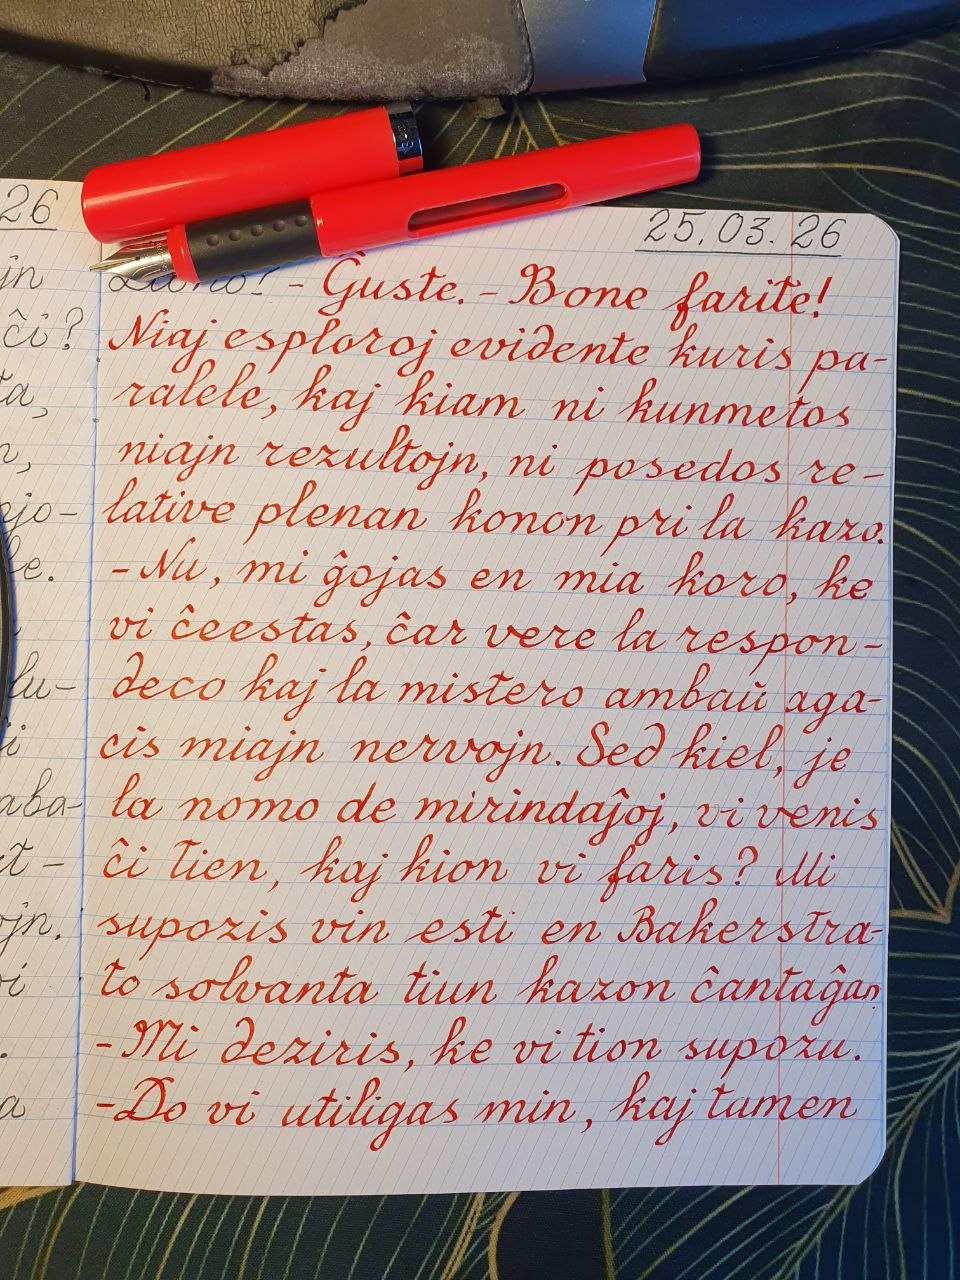 26
jn
ĉi?
ta,
n,
ojo-
le.
lu-
i
aba-
t-
ojn.
vi
a
25.03.26
- Ĝuste. - Bone farite!
Niaj esploroj evidente kuris pa-
ralele, kaj kiam ni kunmetos
niajn rezultojn, ni posedos re-
lative plenan konon pri la kazo.
- Nu, mi ĝojas en mia koro, ke
vi ĉeestas, ĉar vere la respon-
deco kaj la mistero ambaŭ aga-
cis miajn nervojn. Sed kiel, je
la nomo de mirindaĵoj, vi venis
ĉi tien, kaj kion vi faris? Mi
supozis vin esti en Bakerstra-
to solvanta tiun kazon ĉantaĝan.
- Mi deziris, ke vi tion supozu.
- Do vi utiligas min, kaj tamen